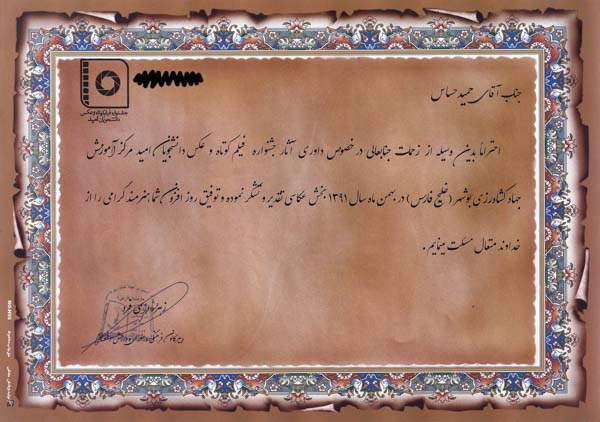 جشنواره فیلم کوتاه و عکس
دانشجویان امید
جناب آقای حمید حساس
احتراماً بدین وسیله از زحمات جنابعالی در خصوص داوری آثار جشنواره فیلم کوتاه و عکس دانشجویان امید مرکز آموزش
جهاد کشاورزی بوشهر (خلیج فارس) در بهمن ماه سال ۱۳۹۱ بخش عکاسی تقدیر و تشکر نموده و توفیق روز افزون شما هنرمند گرامی را از
خداوند متعال مسئلت مینمایم.